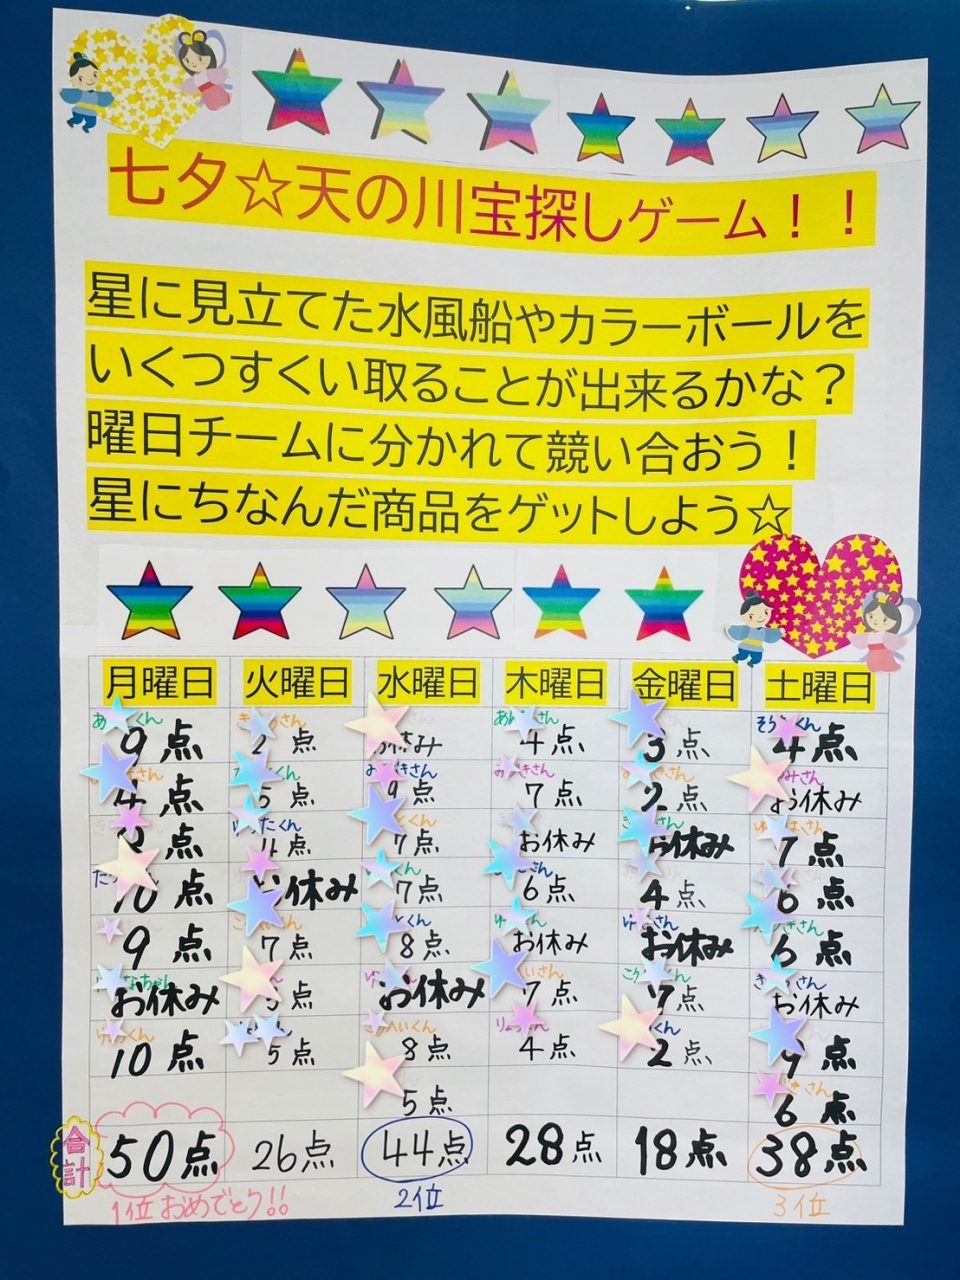 七夕☆天の川宝探しゲーム！！
星に見立てた水風船やカラーボールを
いくつすくい取ることが出来るかな？
曜日チームに分かれて競い合おう！
星にちなんだ商品をゲットしよう☆
月曜日 火曜日 水曜日 木曜日 金曜日 土曜日
くん さん さん さん くん
9点 2点 お休み 4点 3点 4点
さん くん さん さん さん
4点 5点 9点 7点 2点 お休み
くん くん さん さん
点 4点 7点 お休み お休み 7点
10点 お休み 7点 6点 4点 6点
くん さん
9点 7点 8点 お休み お休み 6点
ちゃん さん くん さん
お休み 点 お休み 7点 7点 お休み
くん くん くん
10点 5点 8点 4点 2点 9点
さん
5点 6点
合計 50点 26点 44点 28点 18点 38点
1位おめでとう!! 2位 3位